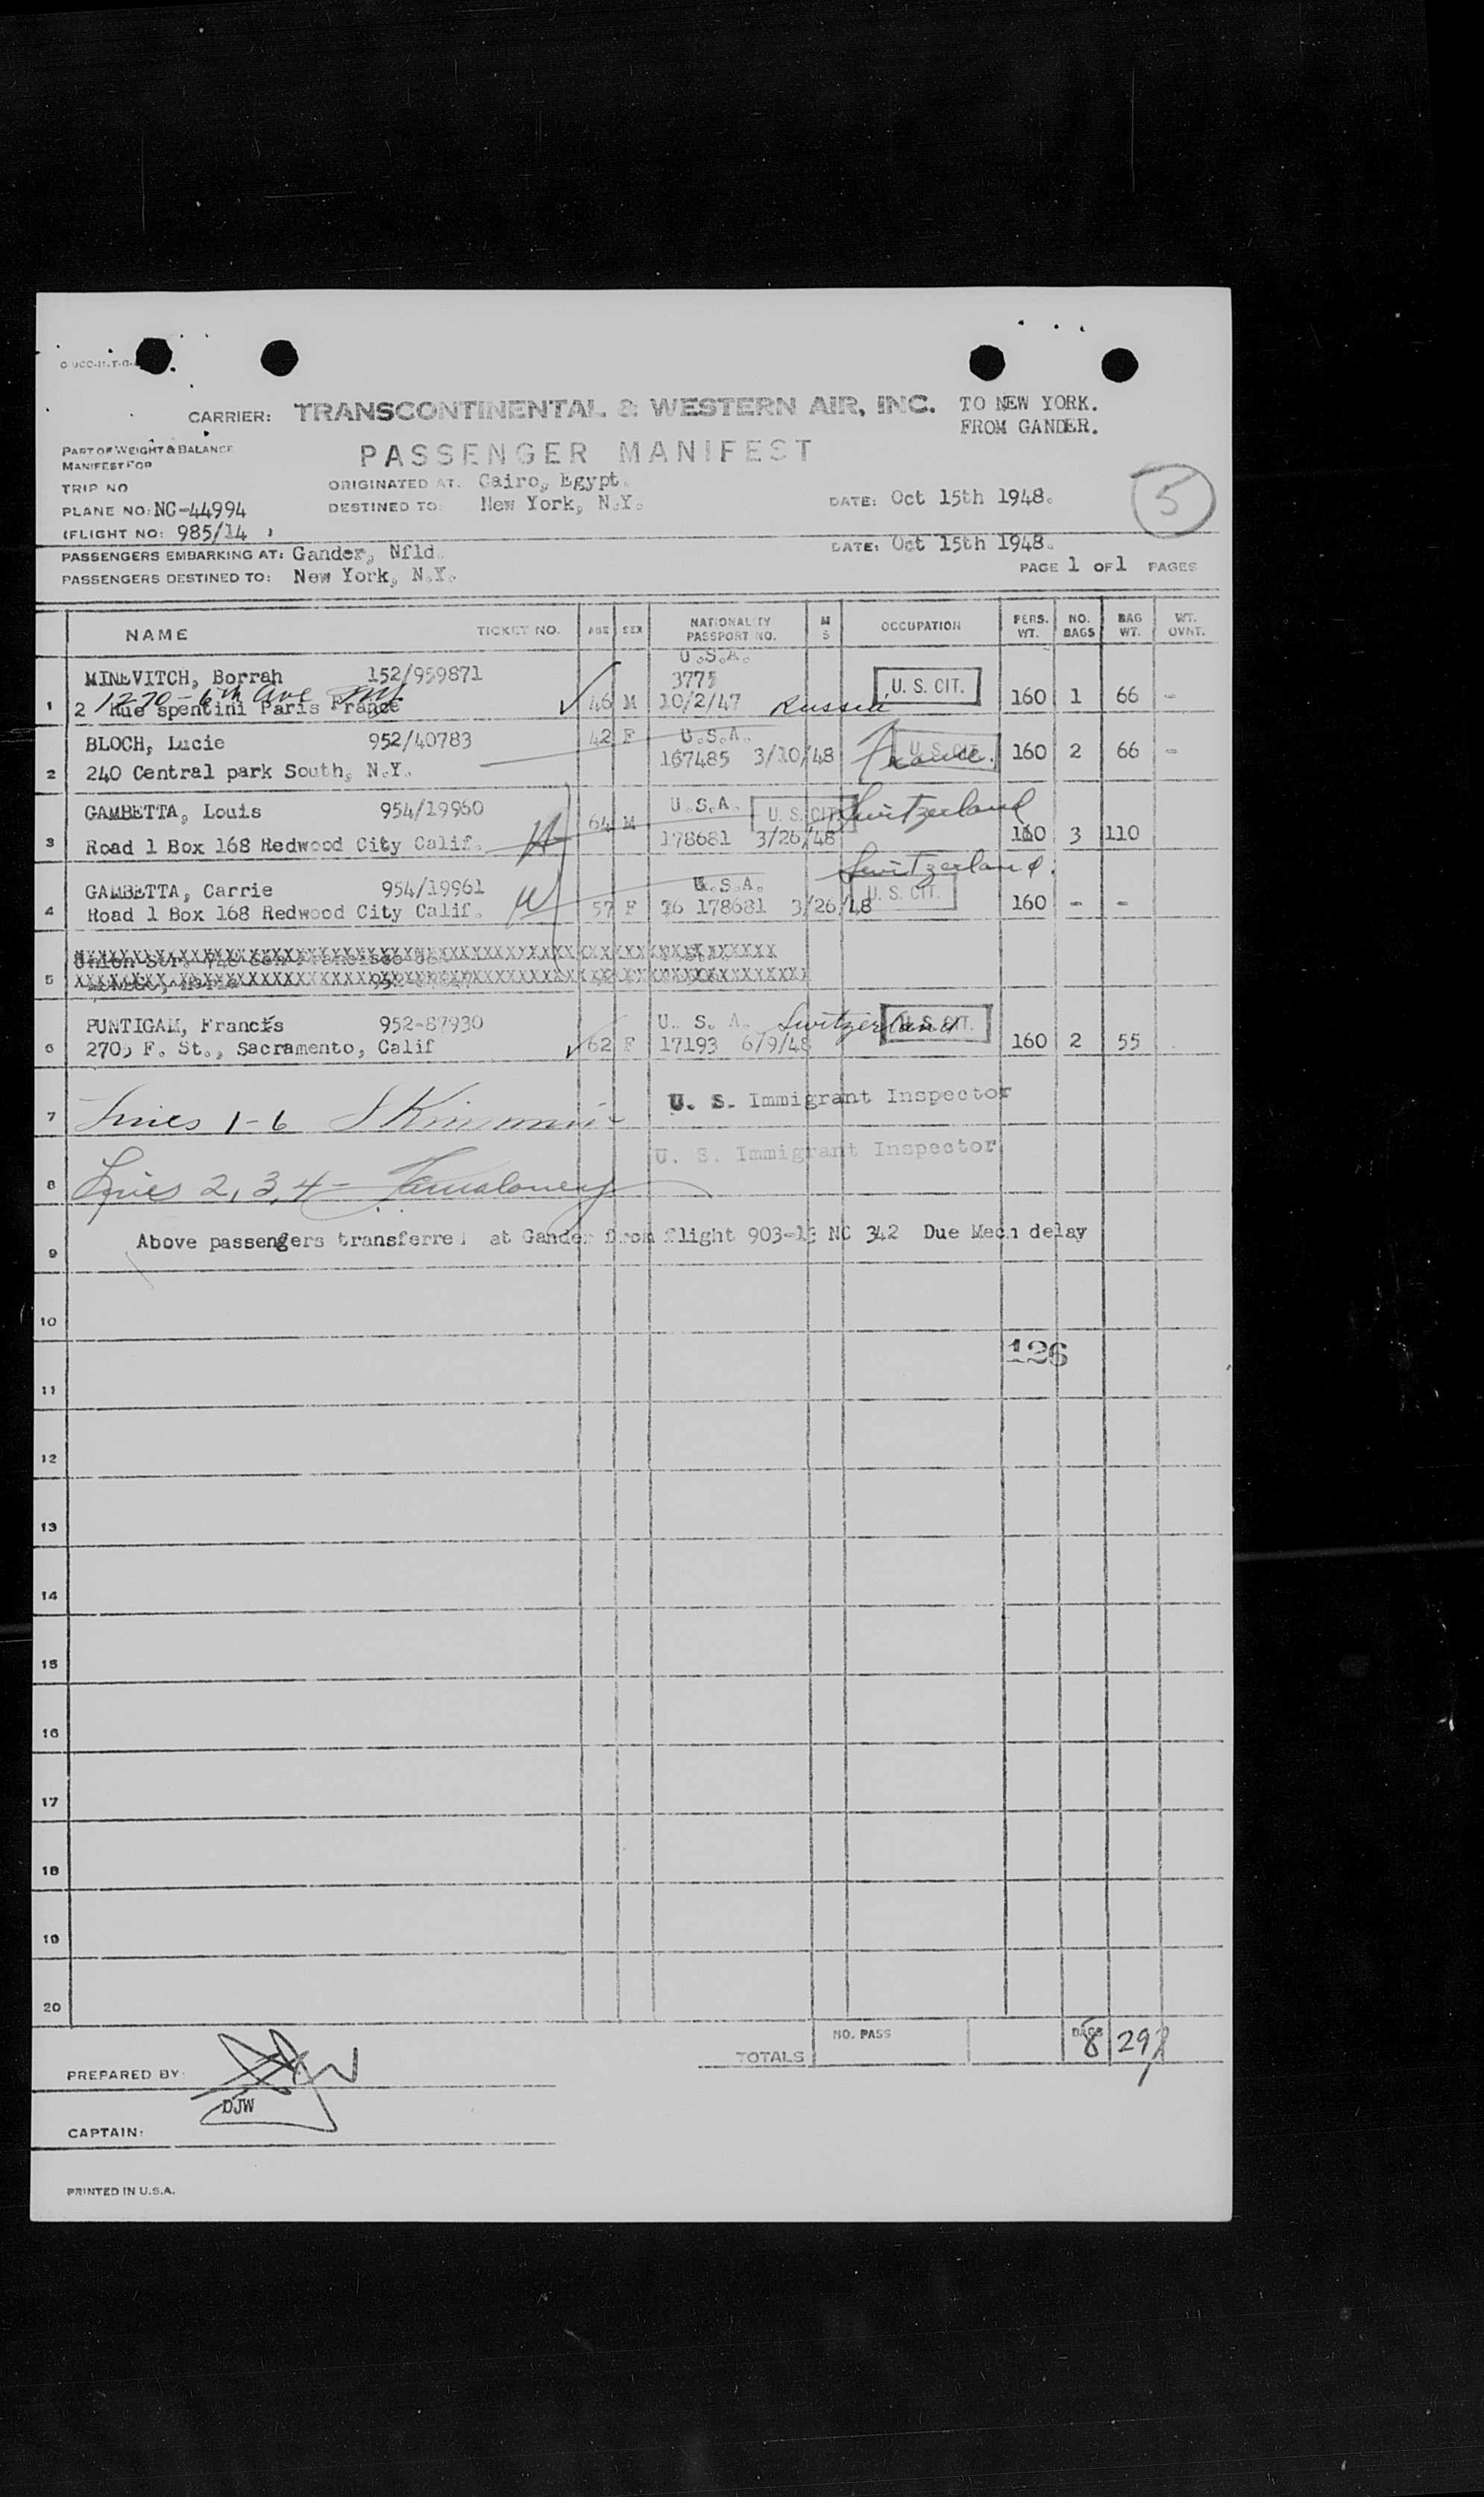 CARRIER: TRANSCONTINENTAL & WESTERN AIR, INC. TO NEW YORK.
FROM GANDER.
PART OF WEIGHT & BALANCE
MANIFEST FOR
PASSENGER MANIFEST
TRIP NO
ORIGINATED AT: Cairo, Egypt.
PLANE NO: NC-44994
DESTINED TO: New York, N.Y.
DATE: Oct 15th 1948.
5
(FLIGHT NO: 985/14 )
PASSENGERS EMBARKING AT: Gander, Nfld.
DATE: Oct 15th 1948.
PASSENGERS DESTINED TO: New York, N.Y.
PAGE 1 OF 1 PAGES
NAME TICKET NO. AGE SEX NATIONALITY PASSPORT NO. M S OCCUPATION PERS. WT. NO. BAGS BAG WT. WT. OVNT.
U.S.A.
MINEVITCH, Borrah 152/959871 3775 U. S. CIT.
1270 - 6th Ave NY
1 2 Rue spentini Paris France 46 M 10/2/47 Russia 160 1 66 -
BLOCH, Lucie 952/40783 42 F U.S.A. U. S. CIT.
2 240 Central park South, N.Y. 167485 3/10/48 France. 160 2 66 -
GAMBETTA, Louis 954/19960 64 M U.S.A. U. S. CIT. Switzerland
3 Road 1 Box 168 Redwood City Calif. 178681 3/26/48 160 3 110
Switzerland.
GAMBETTA, Carrie 954/19961 U.S.A. U. S. CIT.
4 Road 1 Box 168 Redwood City Calif. 57 F 178681 3/26/48 160 - -
5
PUNTIGAM, Francis 952-87930 U. S. A. Switzerland U. S. CIT.
6 2705 F. St., Sacramento, Calif 62 F 17193 6/9/48 160 2 55
7 Lines 1-6 U. S. Immigrant Inspector
U. S. Immigrant Inspector
8 Lines 2, 3, 4 -
9 Above passengers transferred at Gander from flight 903-13 NC 342 Due Mech delay
10
126
11
12
13
14
15
16
17
18
19
20
NO. PASS BAGS 8 297
TOTALS
PREPARED BY:
DJW
CAPTAIN:
PRINTED IN U.S.A.